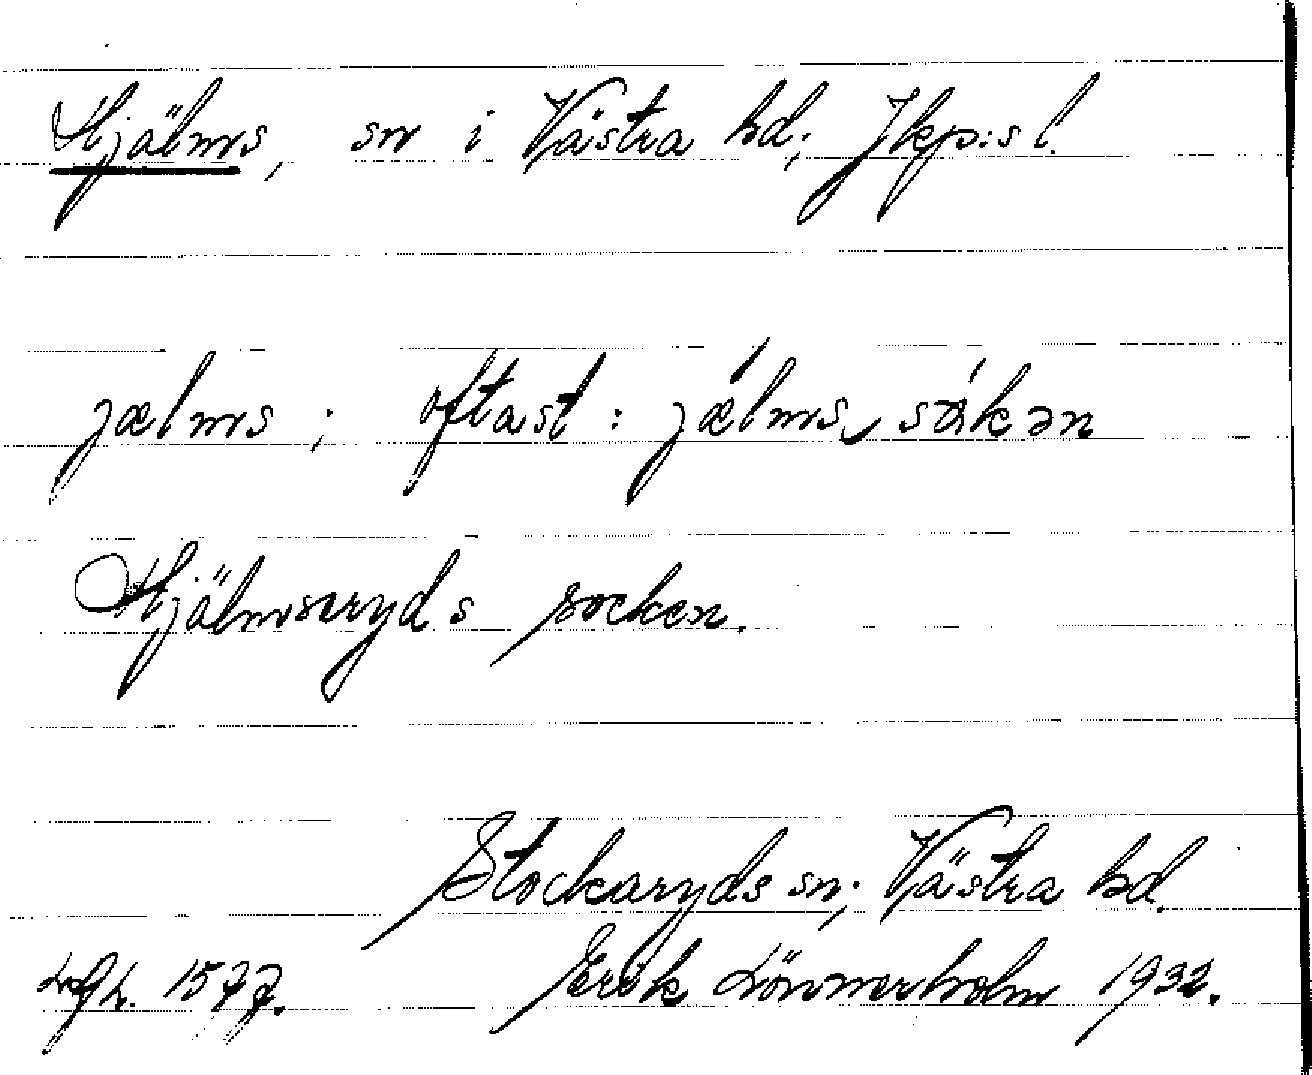 Hjälms, sn i Västra hd; Jkp:s l.
jælms; oftast: jælms såkən
Hjälmseryds socken.
Stockaryds sn; Västra hd.
1577. Erik Lönnerholm 1932.